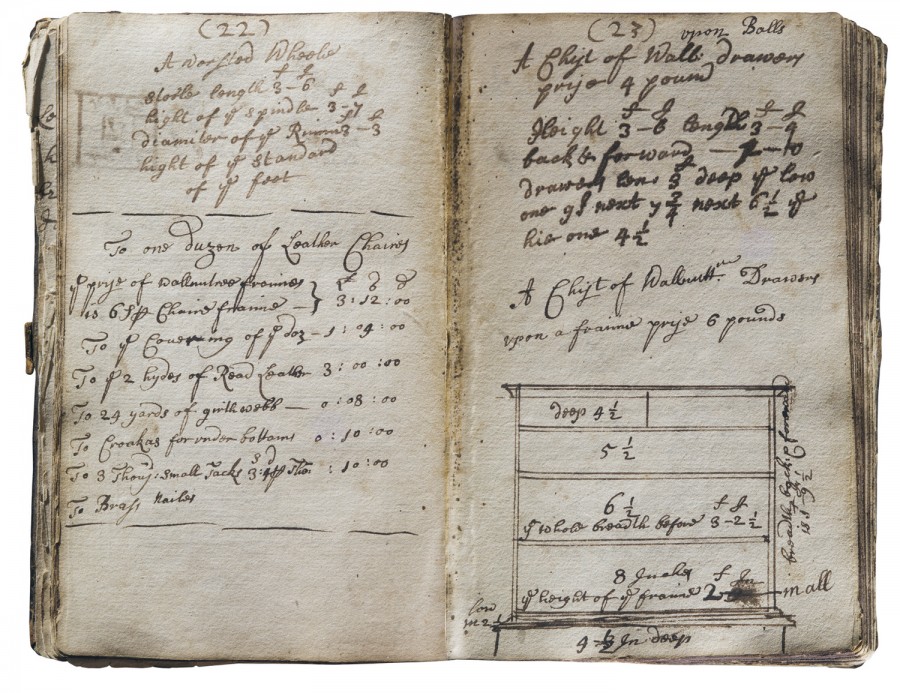 (22)
A worsted Wheele
Stoole length 3-6
f J
hight of ye spindle 3-7
f J
diamiter of ye Rimm 3-3
hight of ye Standard
of ye feet
To one duzen of Leather Chaires
ye prise of wallnutree frames
is 6s p Chaire frame — } 3:12:00
To ye Covering of ye doz - 1:04:00
To ye 2 hydes of Read Leather 3:00:00
To 24 yards of girthwebb — 0:08:00
To Croakas for under bottoms 0:10:00
To 3 Thous: small Tacks 3:4 p Tho: :10:00
To Brass Nailes
(23)
upon Balls
A Chist of Wall: drawers
prise 4 pound
f J f J
Height 3-6 length 3-9
back & forward
drawers 3 deep ye low
one 9 next 7 3/4 next 6 1/2 ye
hie one 4 1/2
A Chist of Wallnutt Drawers
upon a frame prise 6 pounds
deep 4 1/2
5 1/2
6 1/2 f J
ye whole breadth before 3-2 1/2
8 Inches f In
ye height of ye frame 2 in all
4 1/2 In deep
low
in 2
breadth back & forward
is 1-9 1/2